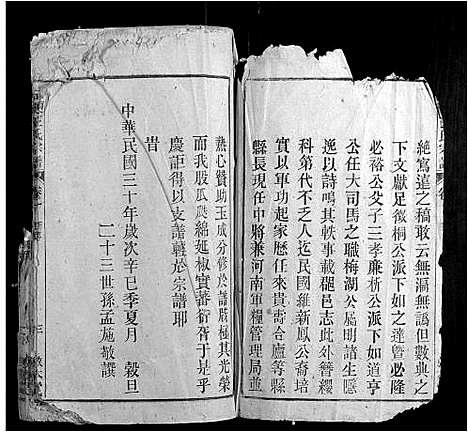 絶寫遠之稿敢云無漏無譌但數典之
下文獻足徵桐公派下如之達曁必隆
必裕公父子三孝廉析公派下如道亨
公任大司馬之職梅湖公屬明諸生
逸以詩鳴其軼事載郡邑志此外簪纓
科第代不乏人迄民國維新鳳公裔培
實以軍功起家歷任來貴嵜合廬等縣
縣長現任中將兼河南軍糧管理局
熱心贊助玉成分修於譜殷極其光榮
而我股瓜瓞綿延椒實蕃衍胥于是乎
慶詎得以支譜輕於宗譜耶
旹
中華民國三十年歲次辛巳季夏月 穀旦
二十三世孫孟施敬譔